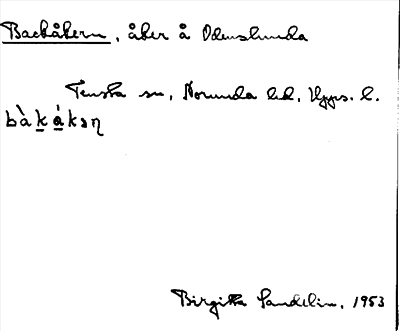 Backåkern, åker å Odenslunda
Tensta sn, Norunda hd, Upps. l.
bàkákəɳ
Birgitta Sandelin, 1953